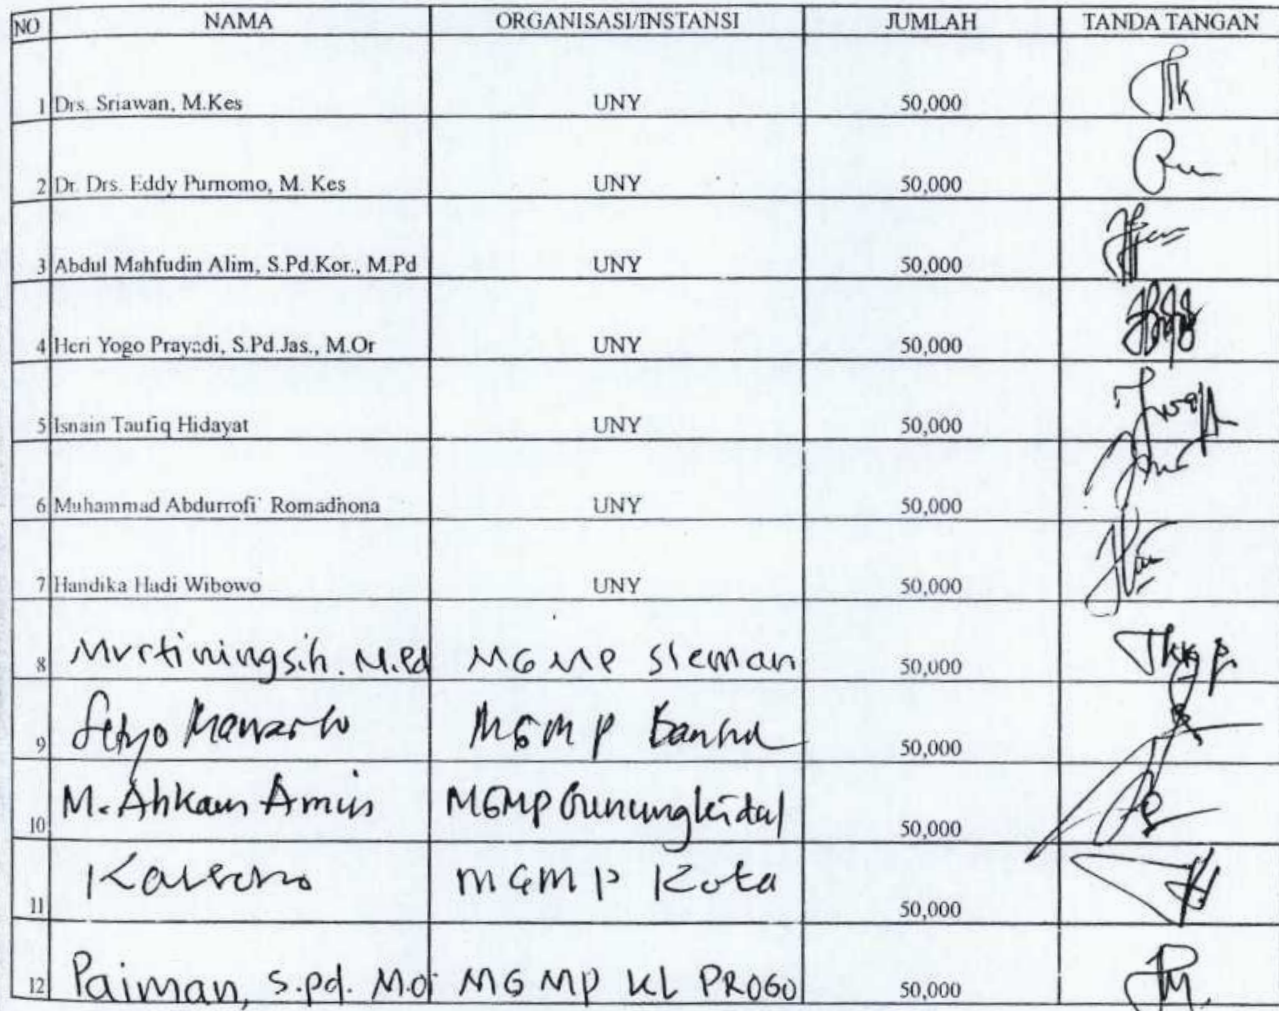 NO NAMA ORGANISASI/INSTANSI JUMLAH TANDA TANGAN
1 Drs. Sriawan, M.Kes UNY 50,000
2 Dr. Drs. Eddy Purnomo, M. Kes UNY 50,000
3 Abdul Mahfudin Alim, S.Pd.Kor., M.Pd UNY 50,000
4 Heri Yogo Prayadi, S.Pd.Jas., M.Or UNY 50,000
5 Isnain Taufiq Hidayat UNY 50,000
6 Muhammad Abdurrofi' Romadhona UNY 50,000
7 Handika Hadi Wibowo UNY 50,000
8 Murtiningsih. M.Pd MGMP Sleman 50,000
9 Setyo MGMP Bantul 50,000
10 M. Ahkam Amin MGMP Gunungkidul 50,000
11 MGMP Kota 50,000
12 Paiman, S.pd. M.O MGMP KL PROGO 50,000